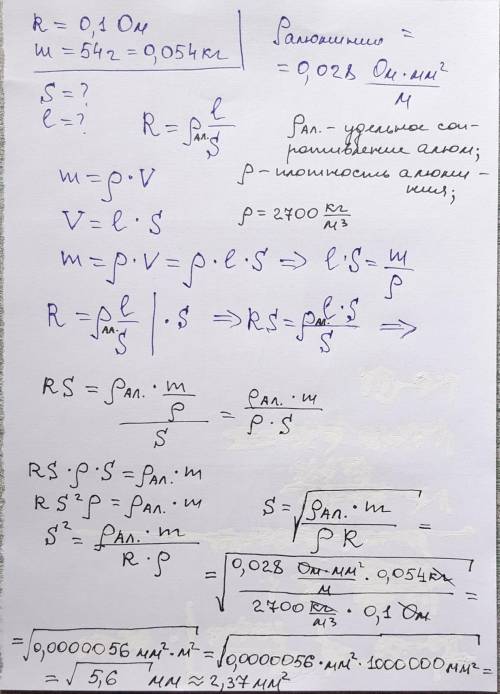 R = 0,1 Ом
m = 54г = 0,054кг
ρалюминию =
= 0,028 Ом·мм²/м
S = ?
l = ?
R = ρАл. l/S
ρАл. - удельное соп-
ротивление алюм;
m = ρ·V
ρ - плотность алюми-
ния;
V = l·S
ρ = 2700 кг/м³
m = ρ·V = ρ·l·S ⇒ l·S = m/ρ
R = ρАл. l/S | ·S ⇒ RS = ρАл. l·S/S ⇒
RS = (ρАл.·m/ρ)/S = ρАл.·m/ρ·S
RS·ρ·S = ρАл.·m
RS²ρ = ρАл.·m
S² = ρАл.·m/R·ρ
S = √(ρАл.·m/ρR) =
= √(0,028 Ом·мм²/м · 0,054кг / 2700 кг/м³ · 0,1 Ом) =
= √(0,0000056 мм²·м²) = √(0,0000056·мм²·1000000мм²) =
= √5,6 мм ≈ 2,37мм²